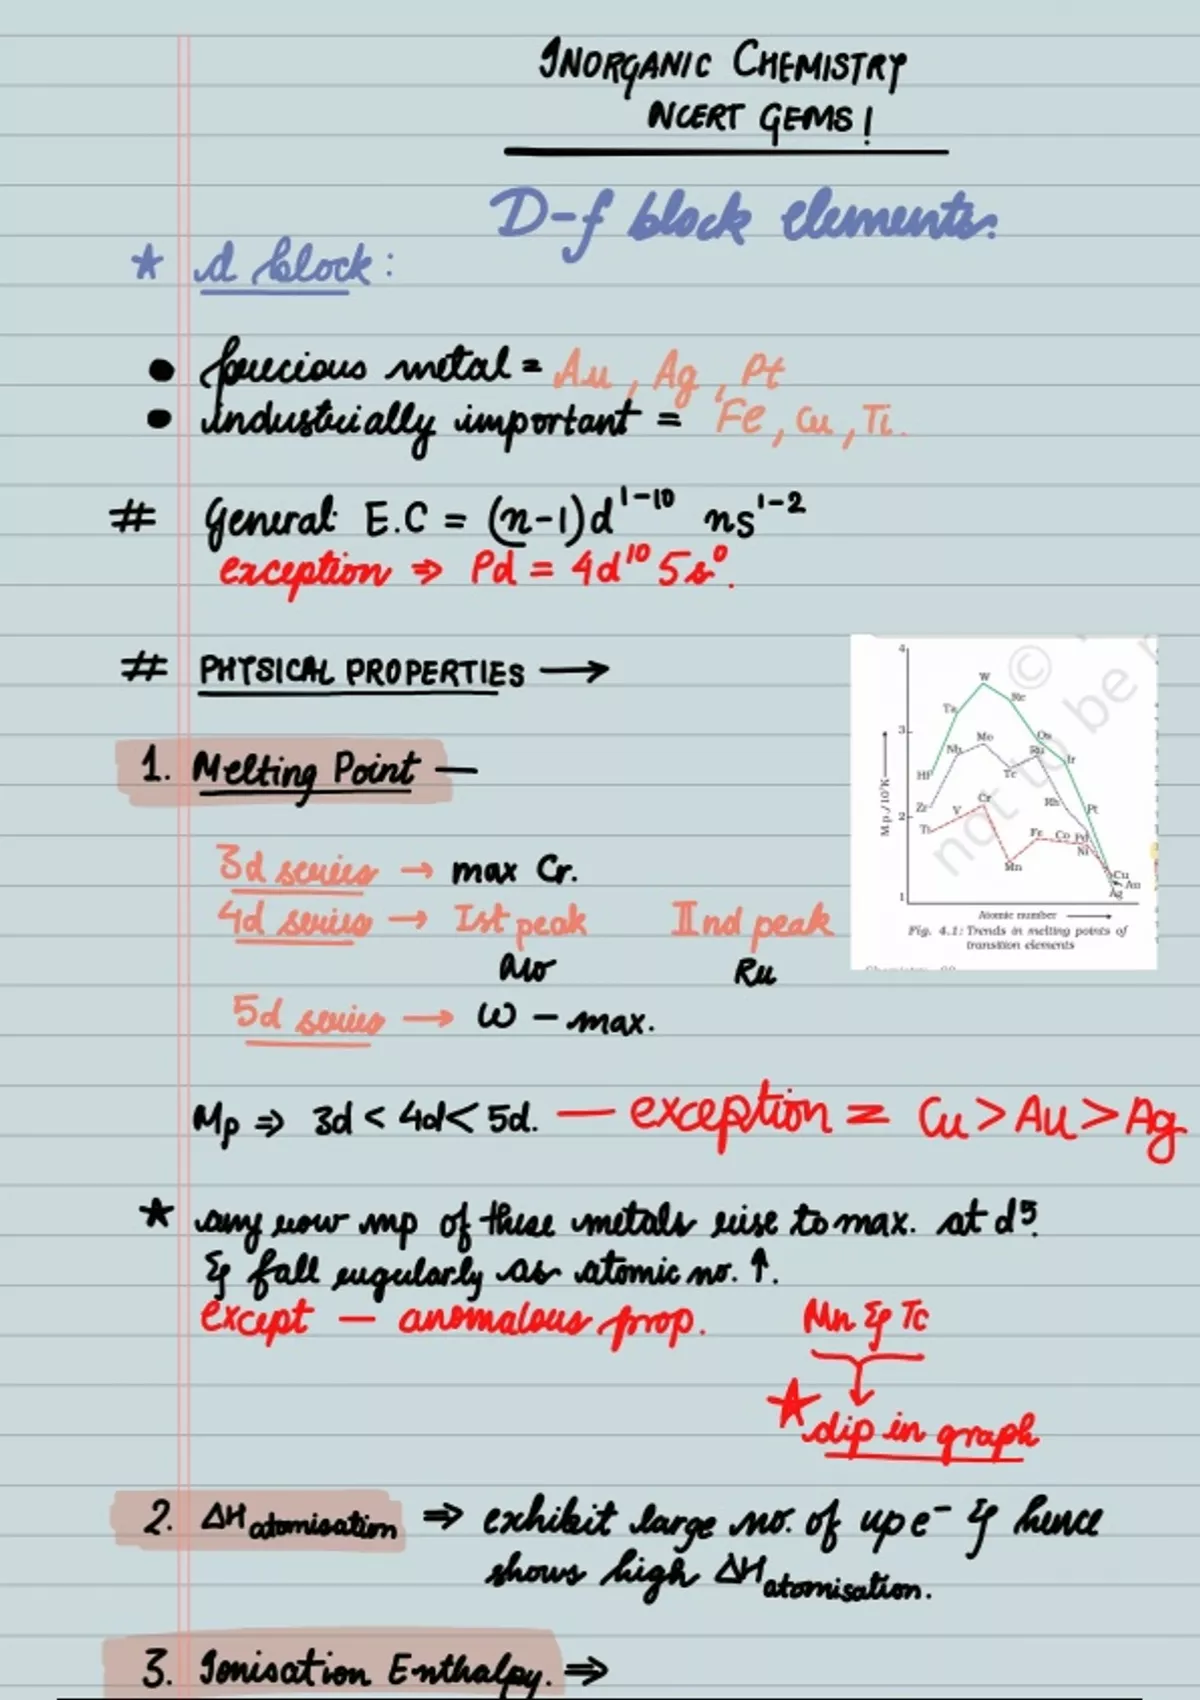 INORGANIC CHEMISTRY
NCERT GEMS!
D-f block elements.
★ d block:
• precious metal = Au, Ag, Pt
• industrially important = Fe, Cu, Ti.
# General E.C = (n-1)d¹⁻¹⁰ ns¹⁻²
exception ⇒ Pd = 4d¹⁰ 5s⁰.
# PHYSICAL PROPERTIES →
1. Melting Point —
3d series → max Cr.
4d series → Ist peak IInd peak
Mo Ru
5d series → W – max.
4
W
Re
Ta
3
Mo
Os
Nb
Ru
Ir
Tc
Hf
Zr
Rh
Pt
Cr
V
2
Ti
Fe
Co
Pd
Ni
Mn
Cu
Au
Ag
1
M.p./10³K
Atomic number
Fig. 4.1: Trends in melting points of
transition elements
© not to be r
Chemistry
Mp ⇒ 3d < 4d < 5d. — exception = Cu > Au > Ag
★ any row mp of these metals rise to max. at d⁵.
& fall regularly as atomic no. ↑.
except — anomalous prop. Mn & Tc
★ dip in graph
2. ΔH atomisation ⇒ exhibit large no. of up e⁻ & hence
shows high ΔH atomisation.
3. Ionisation Enthalpy. ⇒